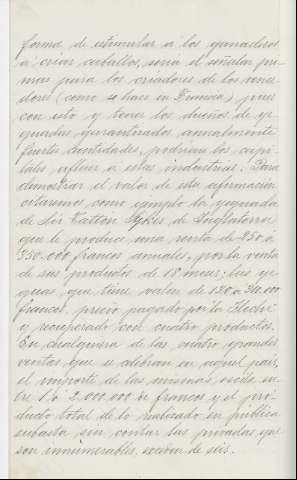 forma de estimular a los ganaderos
a criar caballos, seria el señalar pri-
mas para los criadores de los vence-
dores (como se hace en Francia) pues
con esto y tener los dueños de ye-
guadas garantizadas anualmente
fuertes cantidades, podrian los capi-
tales afluir a estas industrias. Para
demostrar el valor de esta afirmación
citaremos como ejemplo la yeguada
de Sir Tatton Sykes de Inglaterra
que le produce una renta de 250 á
350.000 francos anuales, por la venta
de sus productos de 18 meses; las ye-
guas, que tiene valen de 120 a
francos, precio pagado por la
y recuperado con cuatro productos.
En cualquiera de las cuatro grandes
ventas que se celebran en aquel pais,
el importe de las mismas, oscila en-
tre 1 ó 2.000.000 de francos y el pro-
ducto total de lo realizado en pública
subasta, sin contar las privadas, que
son innumerables, exceden de seis.